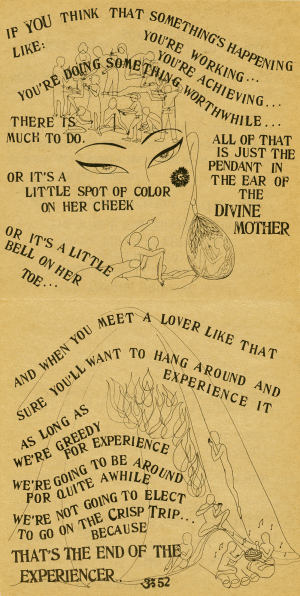 IF YOU THINK THAT SOMETHING'S HAPPENING
LIKE:
YOU'RE WORKING...
YOU'RE ACHIEVING...
YOU'RE DOING SOMETHING WORTHWHILE...
THERE IS
MUCH TO DO.
ALL OF THAT
IS JUST THE
PENDANT IN
THE EAR OF
THE
DIVINE
MOTHER
OR IT'S A
LITTLE SPOT OF COLOR
ON HER CHEEK
OR IT'S A LITTLE
BELL ON HER
TOE...
AND WHEN YOU MEET A LOVER LIKE THAT
SURE YOU'LL WANT TO HANG AROUND AND
EXPERIENCE IT
AS LONG AS
WE'RE GREEDY
FOR EXPERIENCE
WE'RE GOING TO BE AROUND
FOR QUITE AWHILE
WE'RE NOT GOING TO ELECT
TO GO ON THE CRISP TRIP...
BECAUSE
THAT'S THE END OF THE
EXPERIENCER.
ॐ 52